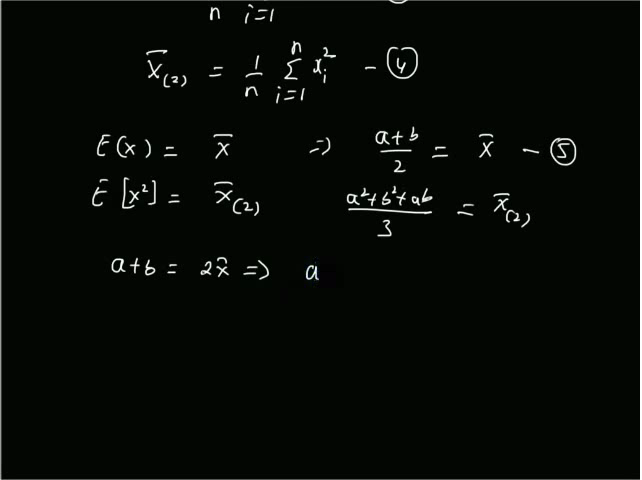 n i=1
x̄₍₂₎ = 1/n Σ_{i=1}^{n} xᵢ² – ④
E(x) = x̄ ⇒ (a+b)/2 = x̄ – ⑤
E[x²] = x̄₍₂₎ (a²+b²+ab)/3 = x̄₍₂₎
a+b = 2x̄ ⇒ a